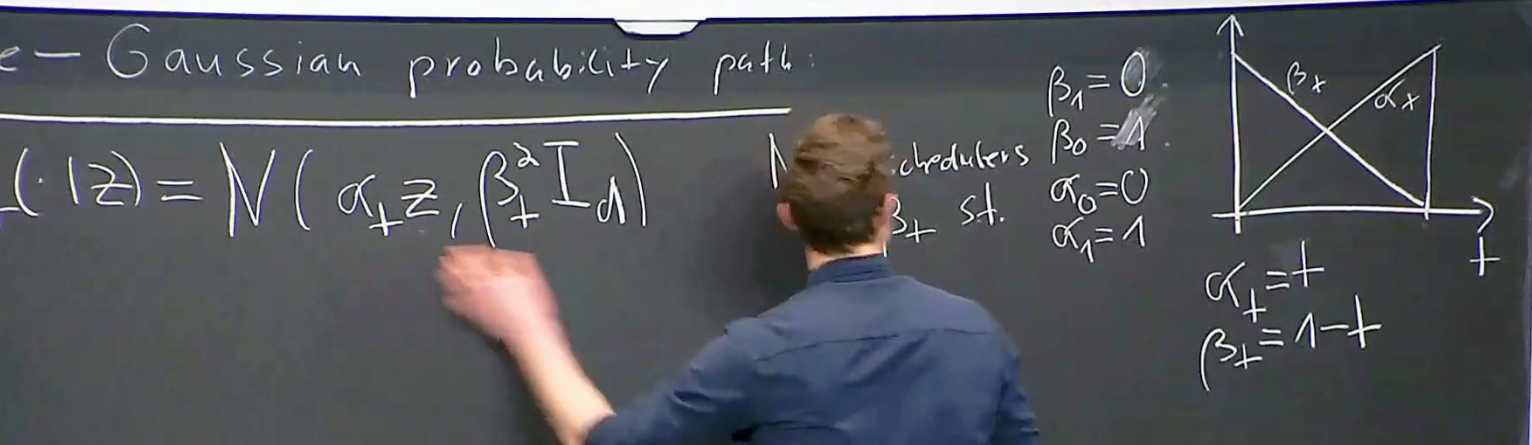 e - Gaussian probability path:
(·|z) = N(α_t z, β_t² I_d)
N
schedulers
β_t s.t.
β₁ = 0
β₀ = 1
α₀ = 0
α₁ = 1
β_t
α_t
t
α_t = t
β_t = 1 - t